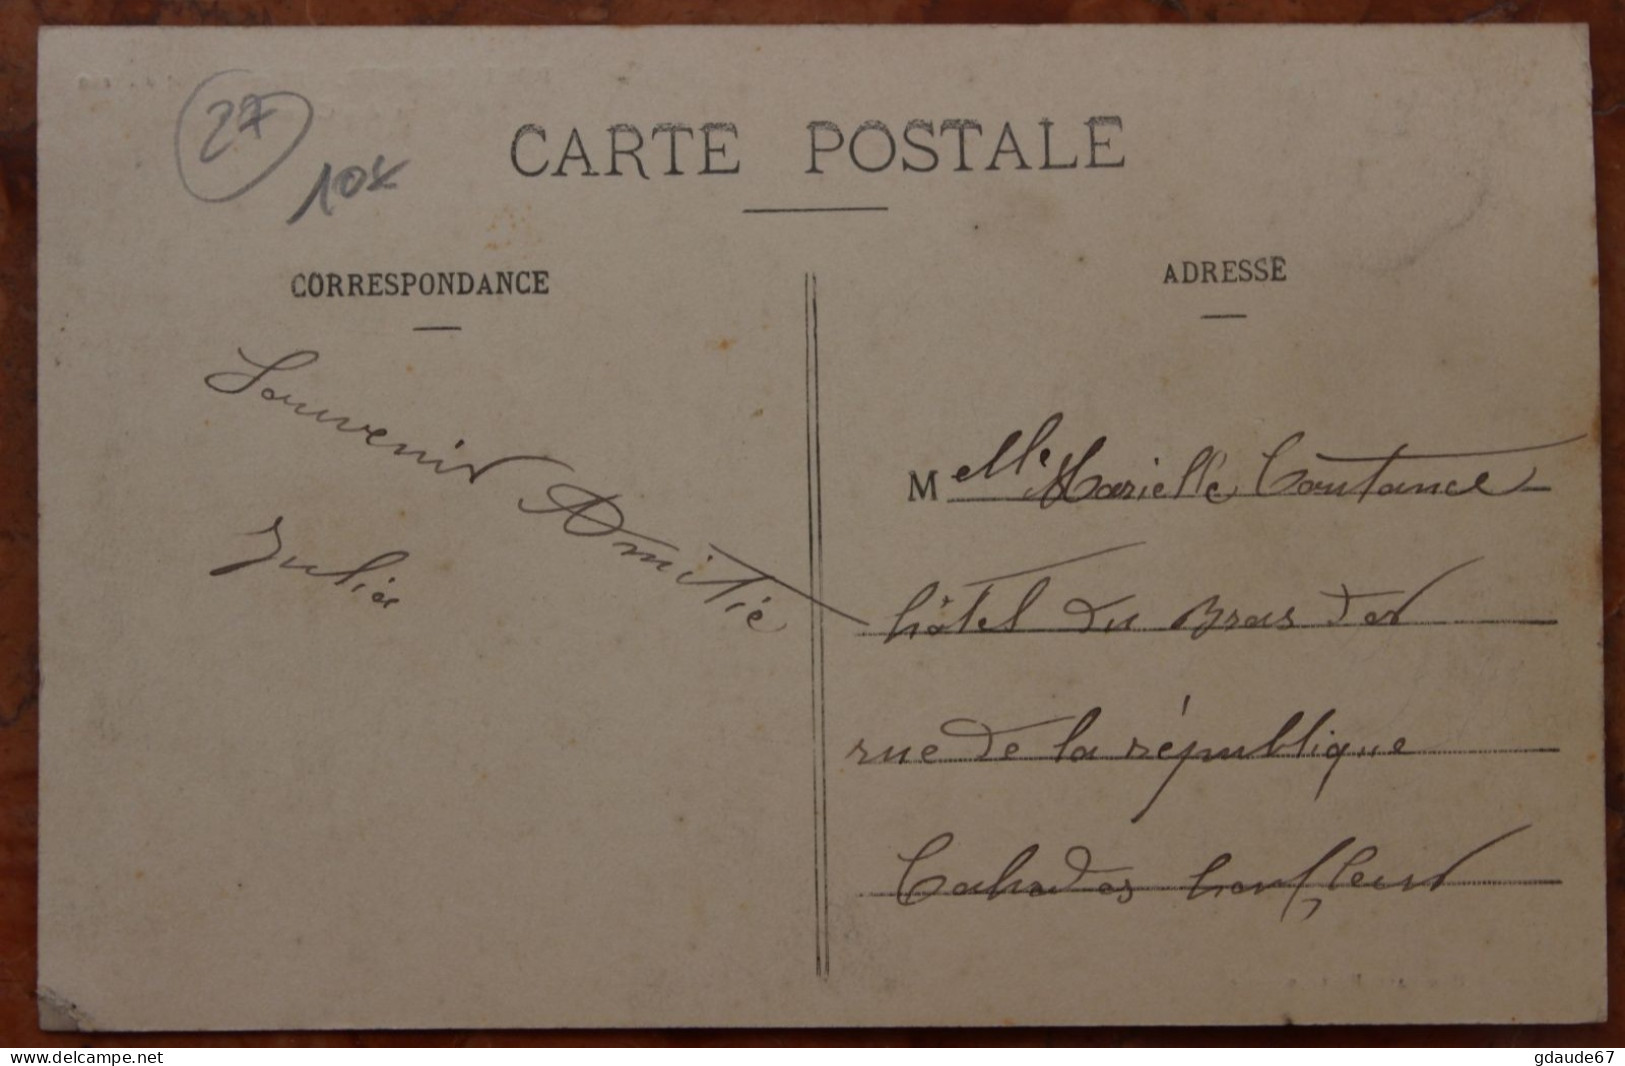 27
10€
CARTE POSTALE
CORRESPONDANCE
ADRESSE
Souvenir Amitié
Julia
Melle Marielle Coutance
hôtel du Bras d'or
rue de la république
Calvados honfleur
delcampe.net
gdaude67